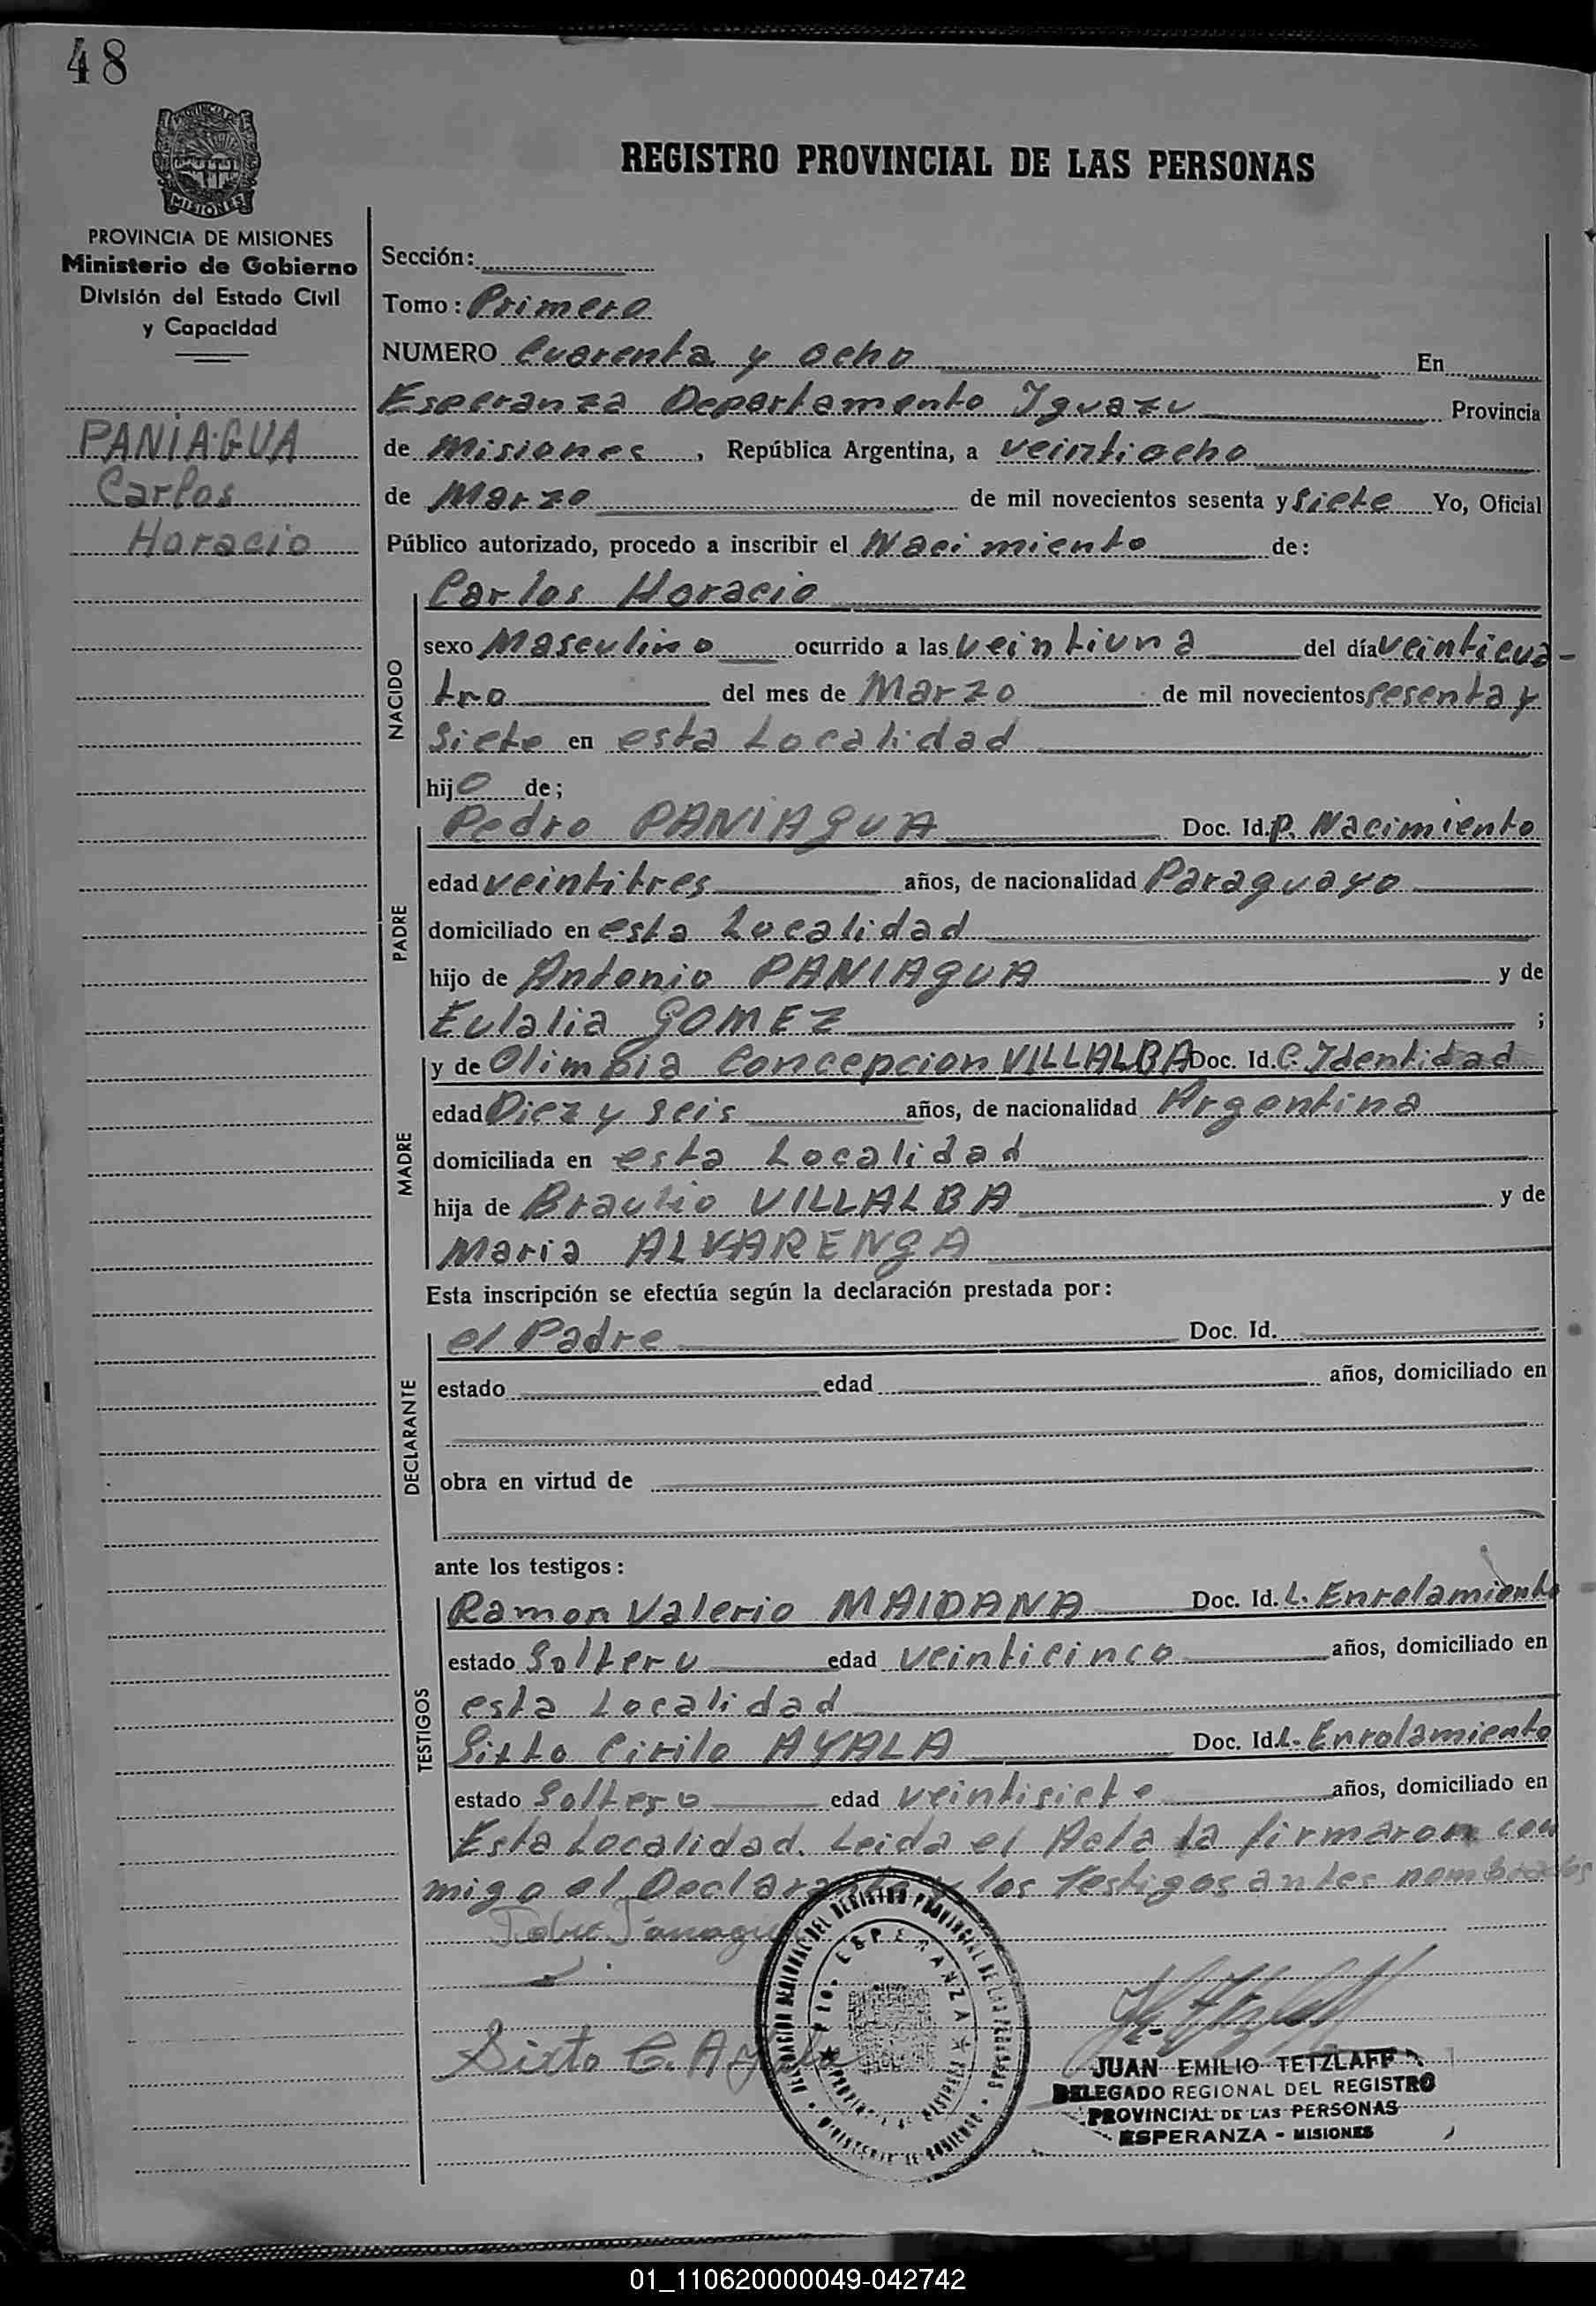 48
PROVINCIA DE
MISIONES
REGISTRO PROVINCIAL DE LAS PERSONAS
PROVINCIA DE MISIONES
Ministerio de Gobierno
División del Estado Civil
y Capacidad
PANIAGUA
Carlos
Horacio
Sección:
Tomo: Primero
NUMERO Cuarenta y ocho En
Esperanza Departamento Iguazu Provincia
de Misiones, República Argentina, a veintiocho
de Marzo de mil novecientos sesenta y siete Yo, Oficial
Público autorizado, procedo a inscribir el Nacimiento de:
NACIDO
Carlos Horacio
sexo Masculino ocurrido a las veintiuna del día veinticua-
tro del mes de Marzo de mil novecientos sesenta y
siete en esta Localidad
hijo de;
PADRE
Pedro PANIAGUA Doc. Id. P. Nacimiento
edad veintitres años, de nacionalidad Paraguayo
domiciliado en esta Localidad
hijo de Antonio PANIAGUA y de
Eulalia GOMEZ ;
MADRE
y de Olimpia Concepcion VILLALBA Doc. Id. C. Identidad
edad Diez y seis años, de nacionalidad Argentina
domiciliada en esta Localidad
hija de Braulio VILLALBA y de
Maria ALVARENGA
Esta inscripción se efectúa según la declaración prestada por:
DECLARANTE
el Padre Doc. Id.
estado edad años, domiciliado en
obra en virtud de
ante los testigos:
TESTIGOS
Ramon Valerio MAIDANA Doc. Id. L. Enrolamiento
estado Soltero edad veinticinco años, domiciliado en
esta Localidad
Sixto Cirilo AYALA Doc. Id. L. Enrolamiento
estado Soltero edad veintisiete años, domiciliado en
Esta Localidad. Leida el Acta la firmaron con
migo el Declarante y los Testigos antes nombrados
Sixto C. Ayala
DELEGACION REGIONAL DEL REGISTRO PROVINCIAL DE LAS PERSONAS
Pto. ESPERANZA
PROVINCIA DE MISIONES
MINISTERIO DE GOBIERNO
JUAN EMILIO TETZLAFF
DELEGADO REGIONAL DEL REGISTRO
PROVINCIAL DE LAS PERSONAS
ESPERANZA - MISIONES
01_110620000049-042742